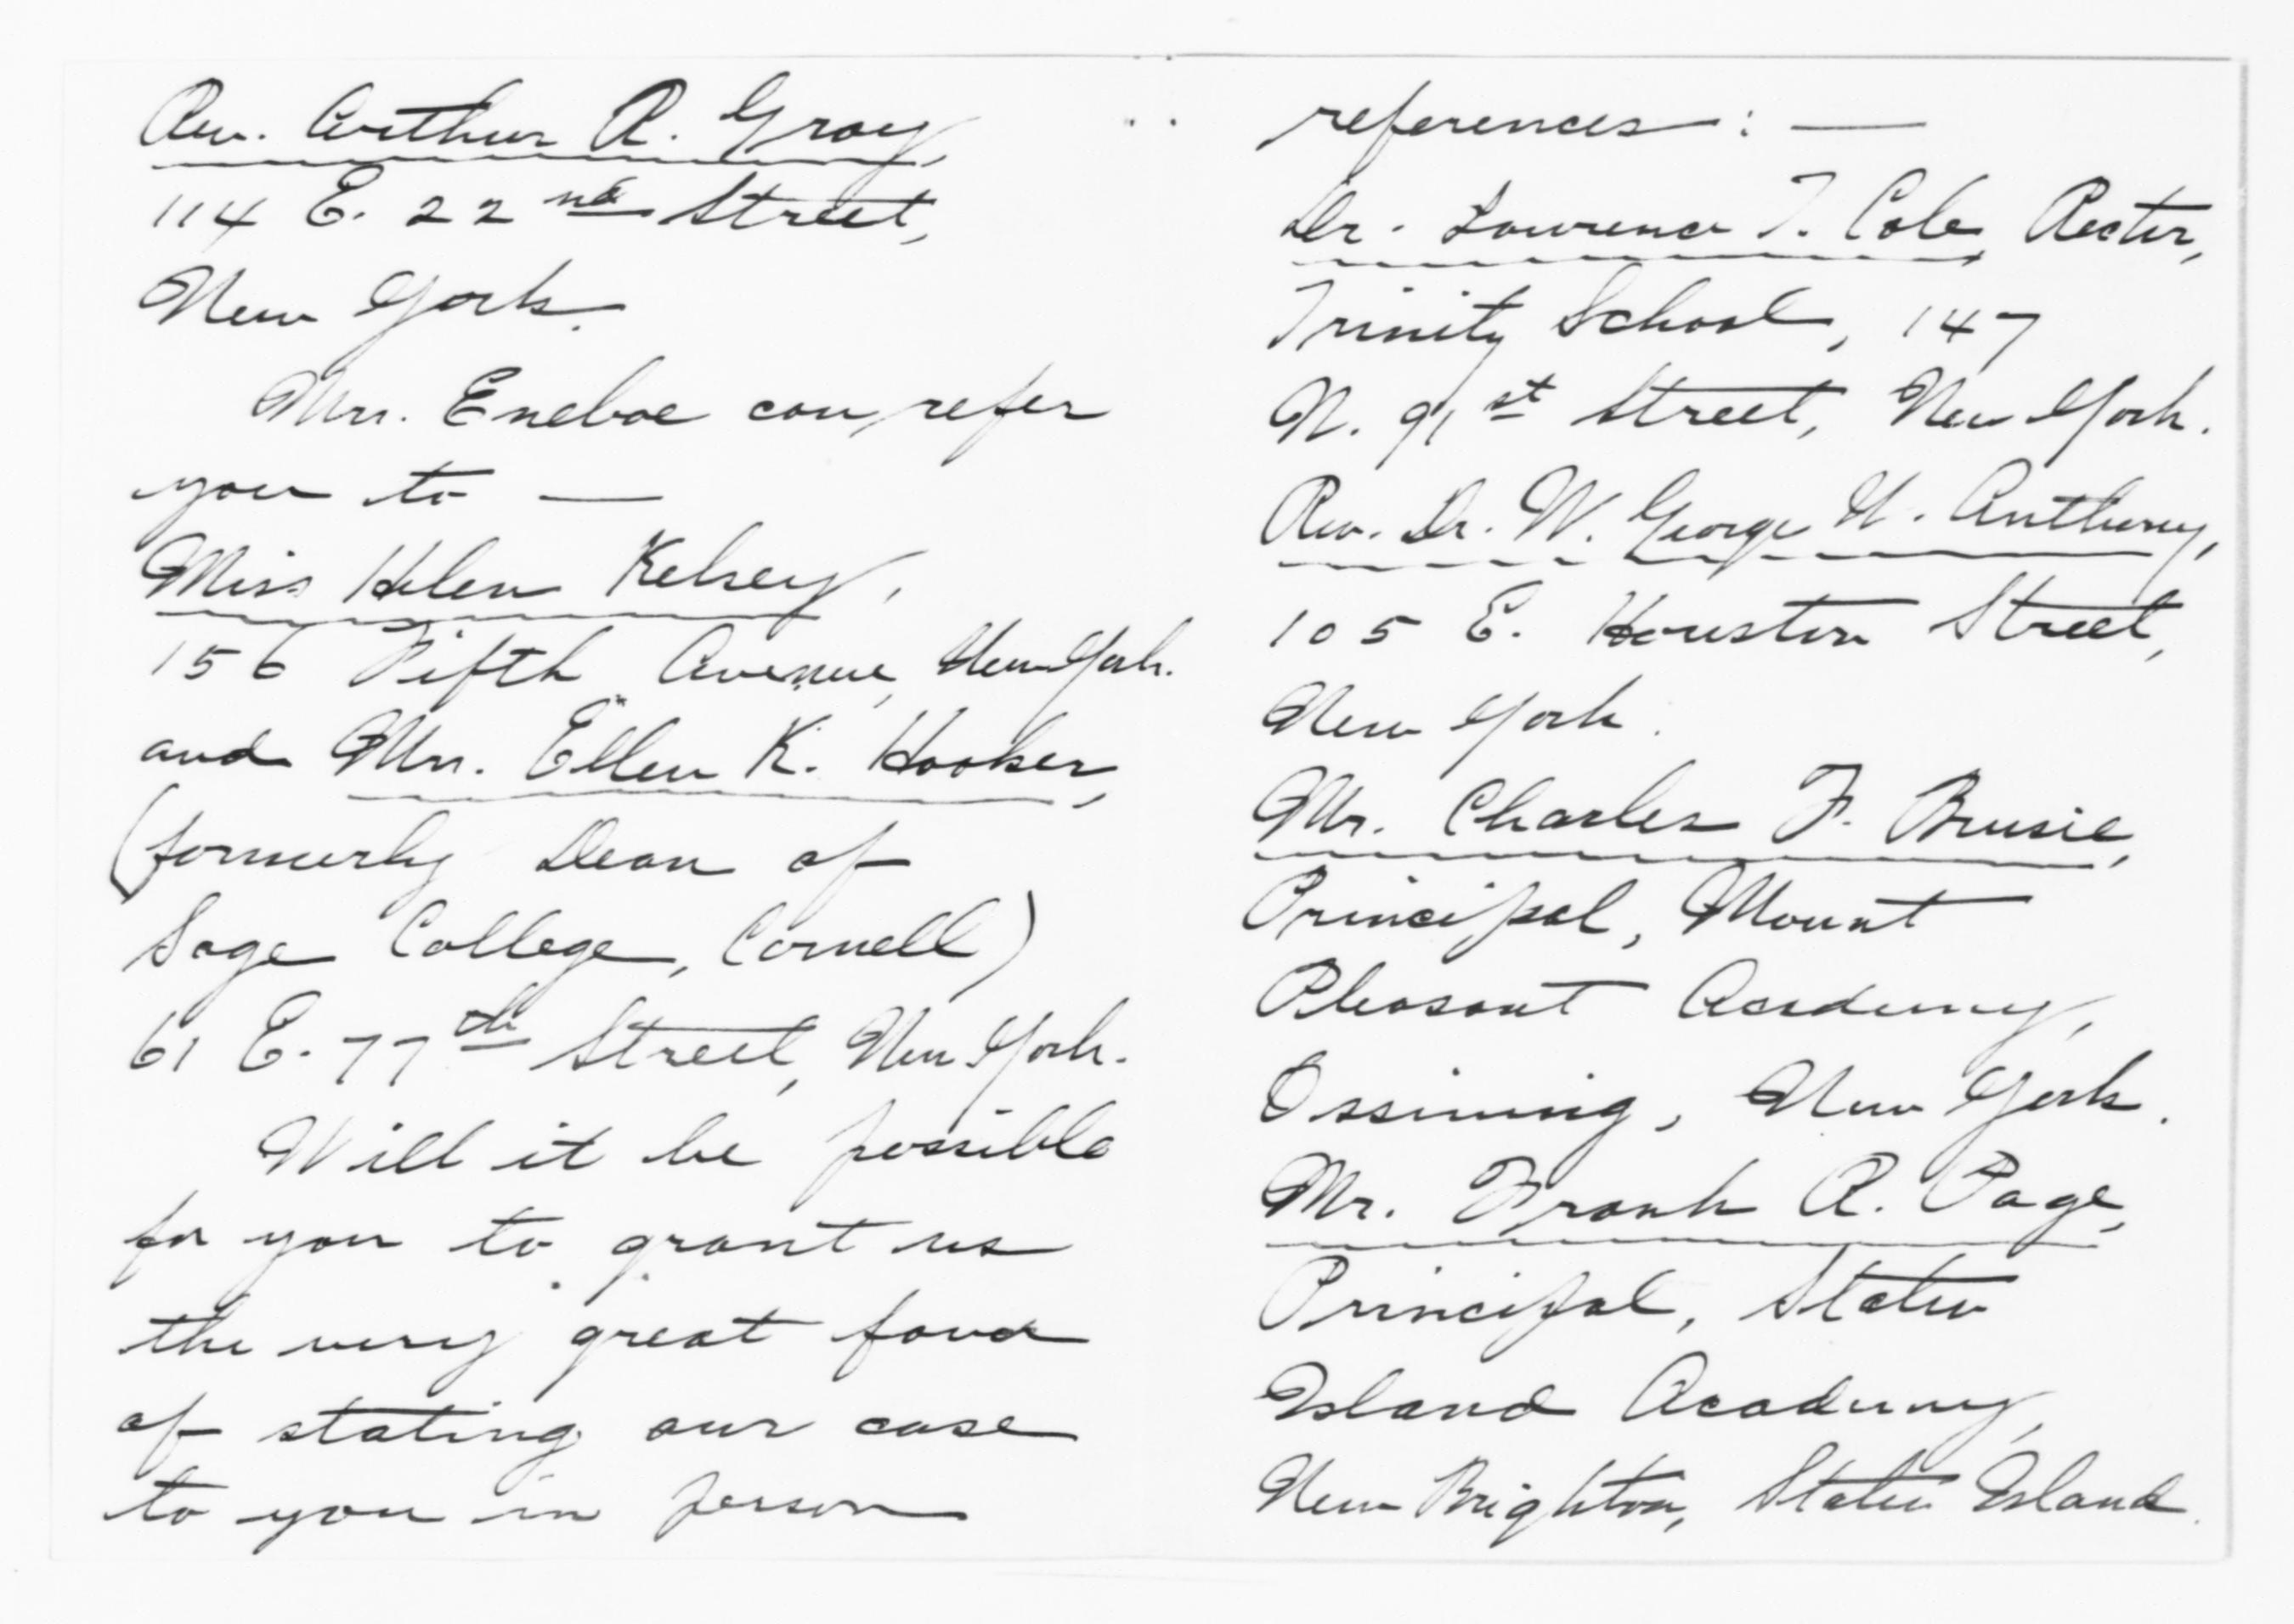 Rev. Arthur R. Gray,
114 E. 22nd Street,
New York.
Mrs. Eneboe can refer
you to —
Miss Helen Kelsey,
156 Fifth Avenue, New York.
and Mrs. Ellen K. Hooker,
(formerly Dean of
Sage College, Cornell)
61 E. 77th Street, New York.
Will it be possible
for you to grant us
the very great favor
of stating our case
to you in person
references: —
Dr. Lawrence T. Cole, Rector,
Trinity School, 147
W. 91st Street, New York.
Rev. Dr. W. George W. Anthony,
105 E. Houston Street,
New York.
Mr. Charles F. Brusie,
Principal, Mount
Pleasant Academy,
Ossining, New York.
Mr. Frank R. Page,
Principal, Staten
Island Academy,
New Brighton, Staten Island.